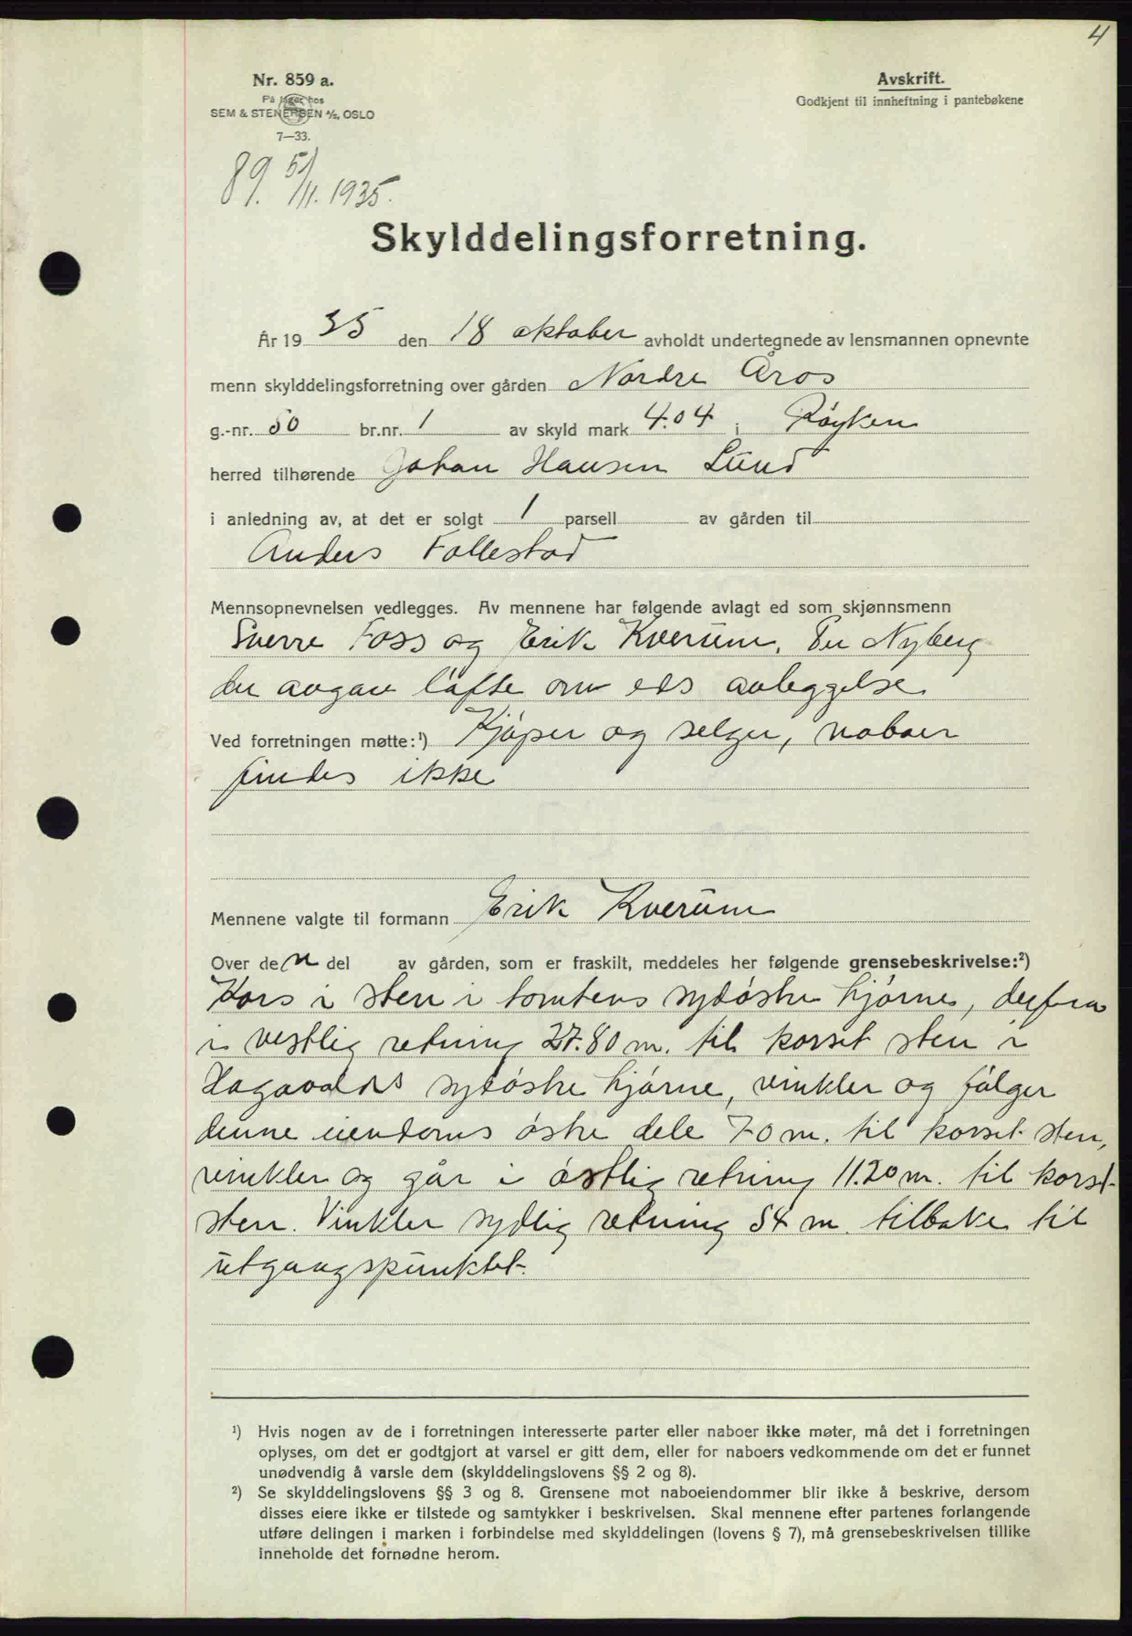 4
Nr. 859 a.
På lager hos
SEM & STENERSEN A/S, OSLO
7—33.
Avskrift.
Godkjent til innheftning i pantebøkene
89. 5/11. 1935.
Skylddelingsforretning.
År 1935 den 18 oktober avholdt undertegnede av lensmannen opnevnte
menn skylddelingsforretning over gården Nordre Åros
g.-nr. 50 br.nr. 1 av skyld mark 4.04 i Røyken
herred tilhørende Johan Hansen Lund
i anledning av, at det er solgt 1 parsell av gården til
Anders Follestad
Mennsopnevnelsen vedlegges. Av mennene har følgende avlagt ed som skjønnsmenn
Sverre Foss og Erik Kverum, Per Nyberg
der avgav løfte om eds avleggelse
Ved forretningen møtte:¹) Kjøper og selger, naboer
findes ikke
Mennene valgte til formann Erik Kverum
Over den del av gården, som er fraskilt, meddeles her følgende grensebeskrivelse:²)
Kors i sten i tomtens sydøstre hjørne, derfra
i vestlig retning 27.80 m. til korset sten i
Hagavolds sydøstre hjørne, vinkler og følger
denne eiendoms østre dele 70 m. til korset sten,
vinkler og går i østlig retning 11.20 m. til korset
sten. Vinkler sydlig retning 54 m. tilbake til
utgangspunktet.
¹) Hvis nogen av de i forretningen interesserte parter eller naboer ikke møter, må det i forretningen
oplyses, om det er godtgjort at varsel er gitt dem, eller for naboers vedkommende om det er funnet
unødvendig å varsle dem (skylddelingslovens §§ 2 og 8).
²) Se skylddelingslovens §§ 3 og 8. Grensene mot naboeiendommer blir ikke å beskrive, dersom
disses eiere ikke er tilstede og samtykker i beskrivelsen. Skal mennene efter partenes forlangende
utføre delingen i marken i forbindelse med skylddelingen (lovens § 7), må grensebeskrivelsen tillike
inneholde det fornødne herom.